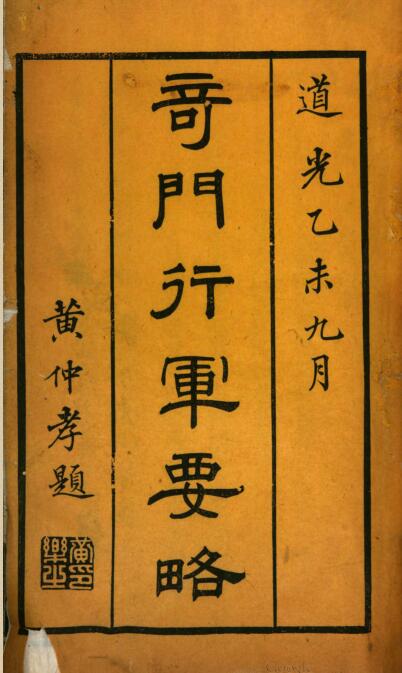 道光乙未九月
奇門行軍要略
黄仲孝題